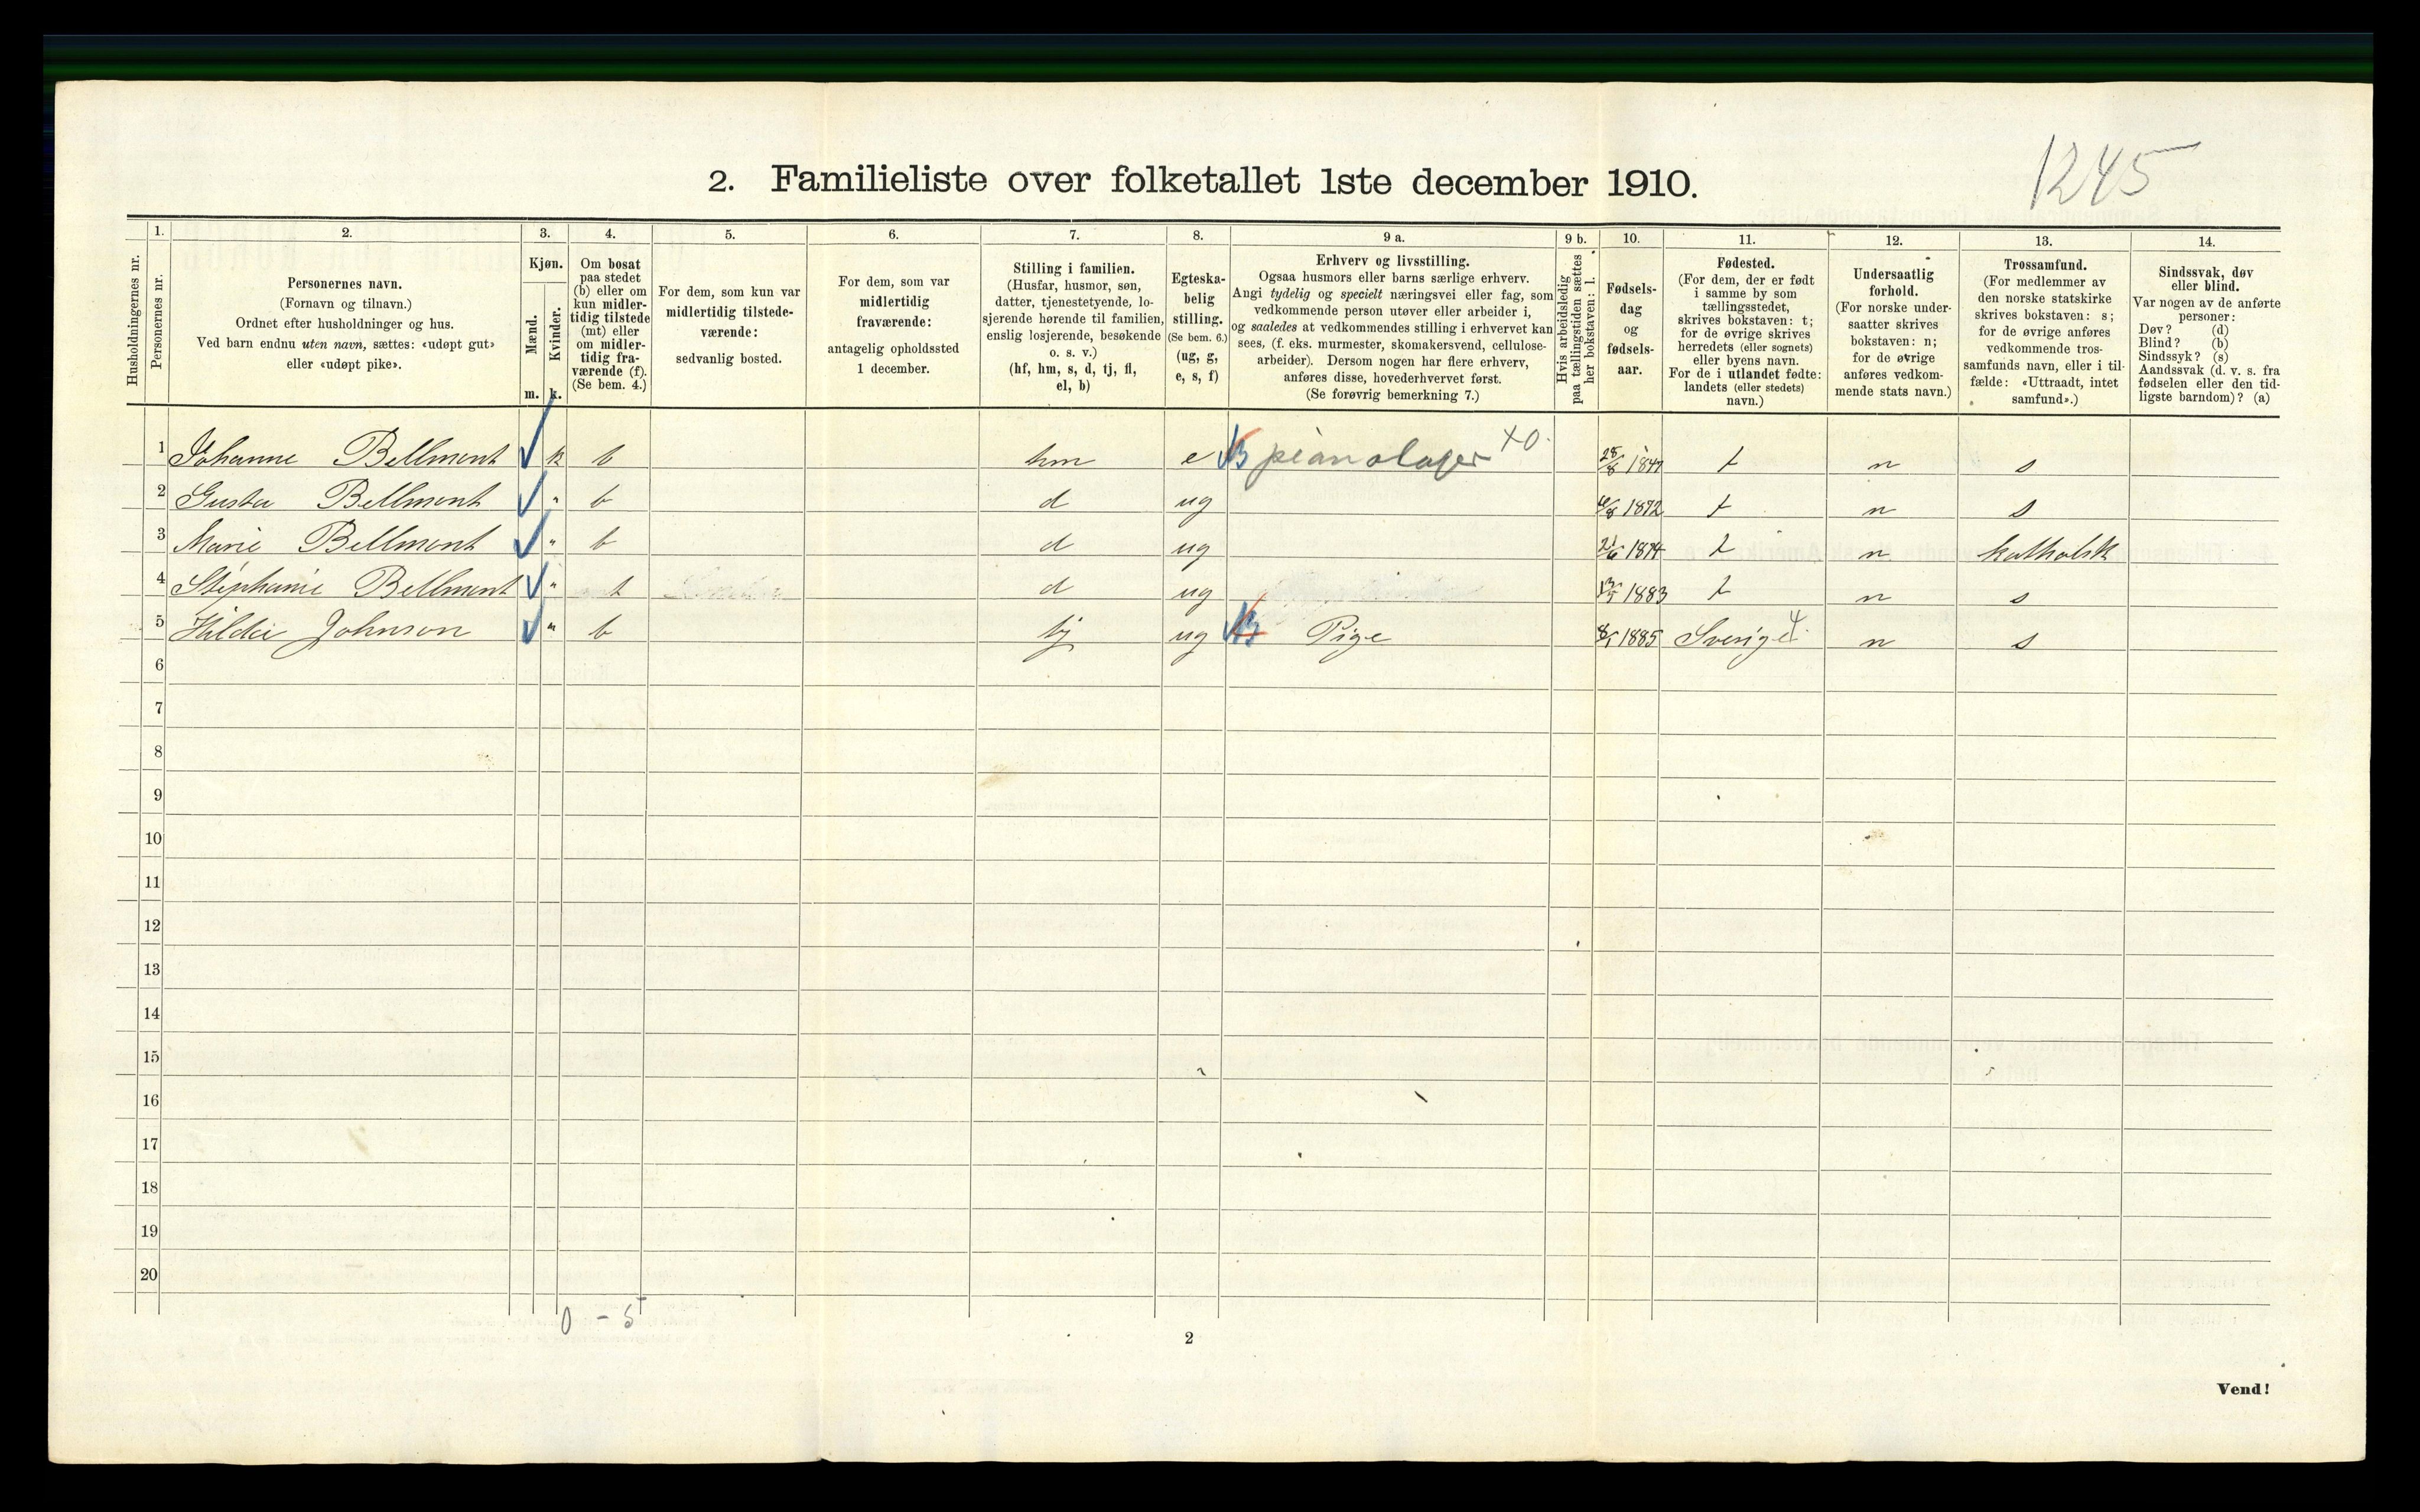 1245
2. Familieliste over folketallet 1ste december 1910.
1. 2. 3. 4. 5. 6. 7. 8. 9 a. 9 b. 10. 11. 12. 13. 14.
Husholdningernes nr.
Personernes nr.
Personernes navn.
(Fornavn og tilnavn.)
Ordnet efter husholdninger og hus.
Ved barn endnu uten navn, sættes: «udøpt gut»
eller «udøpt pike».
Kjøn.
Mænd.
Kvinder.
m. k.
Om bosat
paa stedet
(b) eller om
kun midler-
tidig tilstede
(mt) eller
om midler-
tidig fra-
værende (f).
(Se bem. 4.)
For dem, som kun var
midlertidig tilstede-
værende:
sedvanlig bosted.
For dem, som var
midlertidig
fraværende:
antagelig opholdssted
1 december.
Stilling i familien.
(Husfar, husmor, søn,
datter, tjenestetyende, lo-
sjerende hørende til familien,
enslig losjerende, besøkende
o. s. v.)
(hf, hm, s, d, tj, fl,
el, b)
Egteska-
belig
stilling.
(Se bem. 6.)
(ug, g,
e, s, f)
Erhverv og livsstilling.
Ogsaa husmors eller barns særlige erhverv.
Angi tydelig og specielt næringsvei eller fag, som
vedkommende person utøver eller arbeider i,
og saaledes at vedkommendes stilling i erhvervet kan
sees, (f. eks. murmester, skomakersvend, cellulose-
arbeider). Dersom nogen har flere erhverv,
anføres disse, hovederhvervet først.
(Se forøvrig bemerkning 7.)
Hvis arbeidsledig
paa tællingstiden sættes
her bokstaven: l.
Fødsels-
dag
og
fødsels-
aar.
Fødested.
(For dem, der er født
i samme by som
tællingsstedet,
skrives bokstaven: t;
for de øvrige skrives
herredets (eller sognets)
eller byens navn.
For de i utlandet fødte:
landets (eller stedets)
navn.)
Undersaatlig
forhold.
(For norske under-
saatter skrives
bokstaven: n;
for de øvrige
anføres vedkom-
mende stats navn.)
Trossamfund.
(For medlemmer av
den norske statskirke
skrives bokstaven: s;
for de øvrige anføres
vedkommende tros-
samfunds navn, eller i til-
fælde: «Uttraadt, intet
samfund».)
Sindssvak, døv
eller blind.
Var nogen av de anførte
personer:
Døv? (d)
Blind? (b)
Sindssyk? (s)
Aandssvak (d. v. s. fra
fødselen eller den tid-
ligste barndom)? (a)
1 Johanne Bellmont k b hm e pianolager XO. t n s
2 Gusta Bellmont " b d ug 1872 t n s
3 Marie Bellmont " b d ug 1874 t n katholsk
4 Stephanie Bellmont " d ug 1883 t n s
5 Hilda Johnson " b tj ug Pige 8/1 1885 Sverige n s
6
7
8
9
10
11
12
13
14
15
16
17
18
19
20
0 - 5
2
Vend!